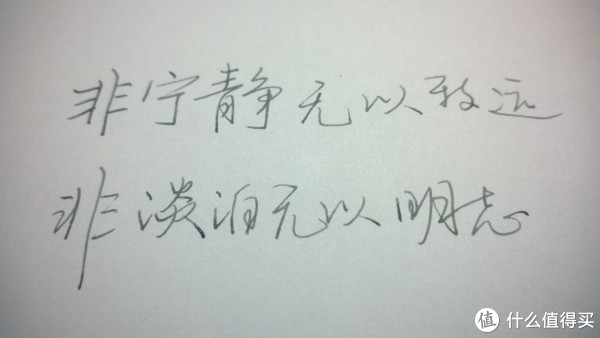 非宁静无以致远
非淡泊无以明志
值 什么值得买